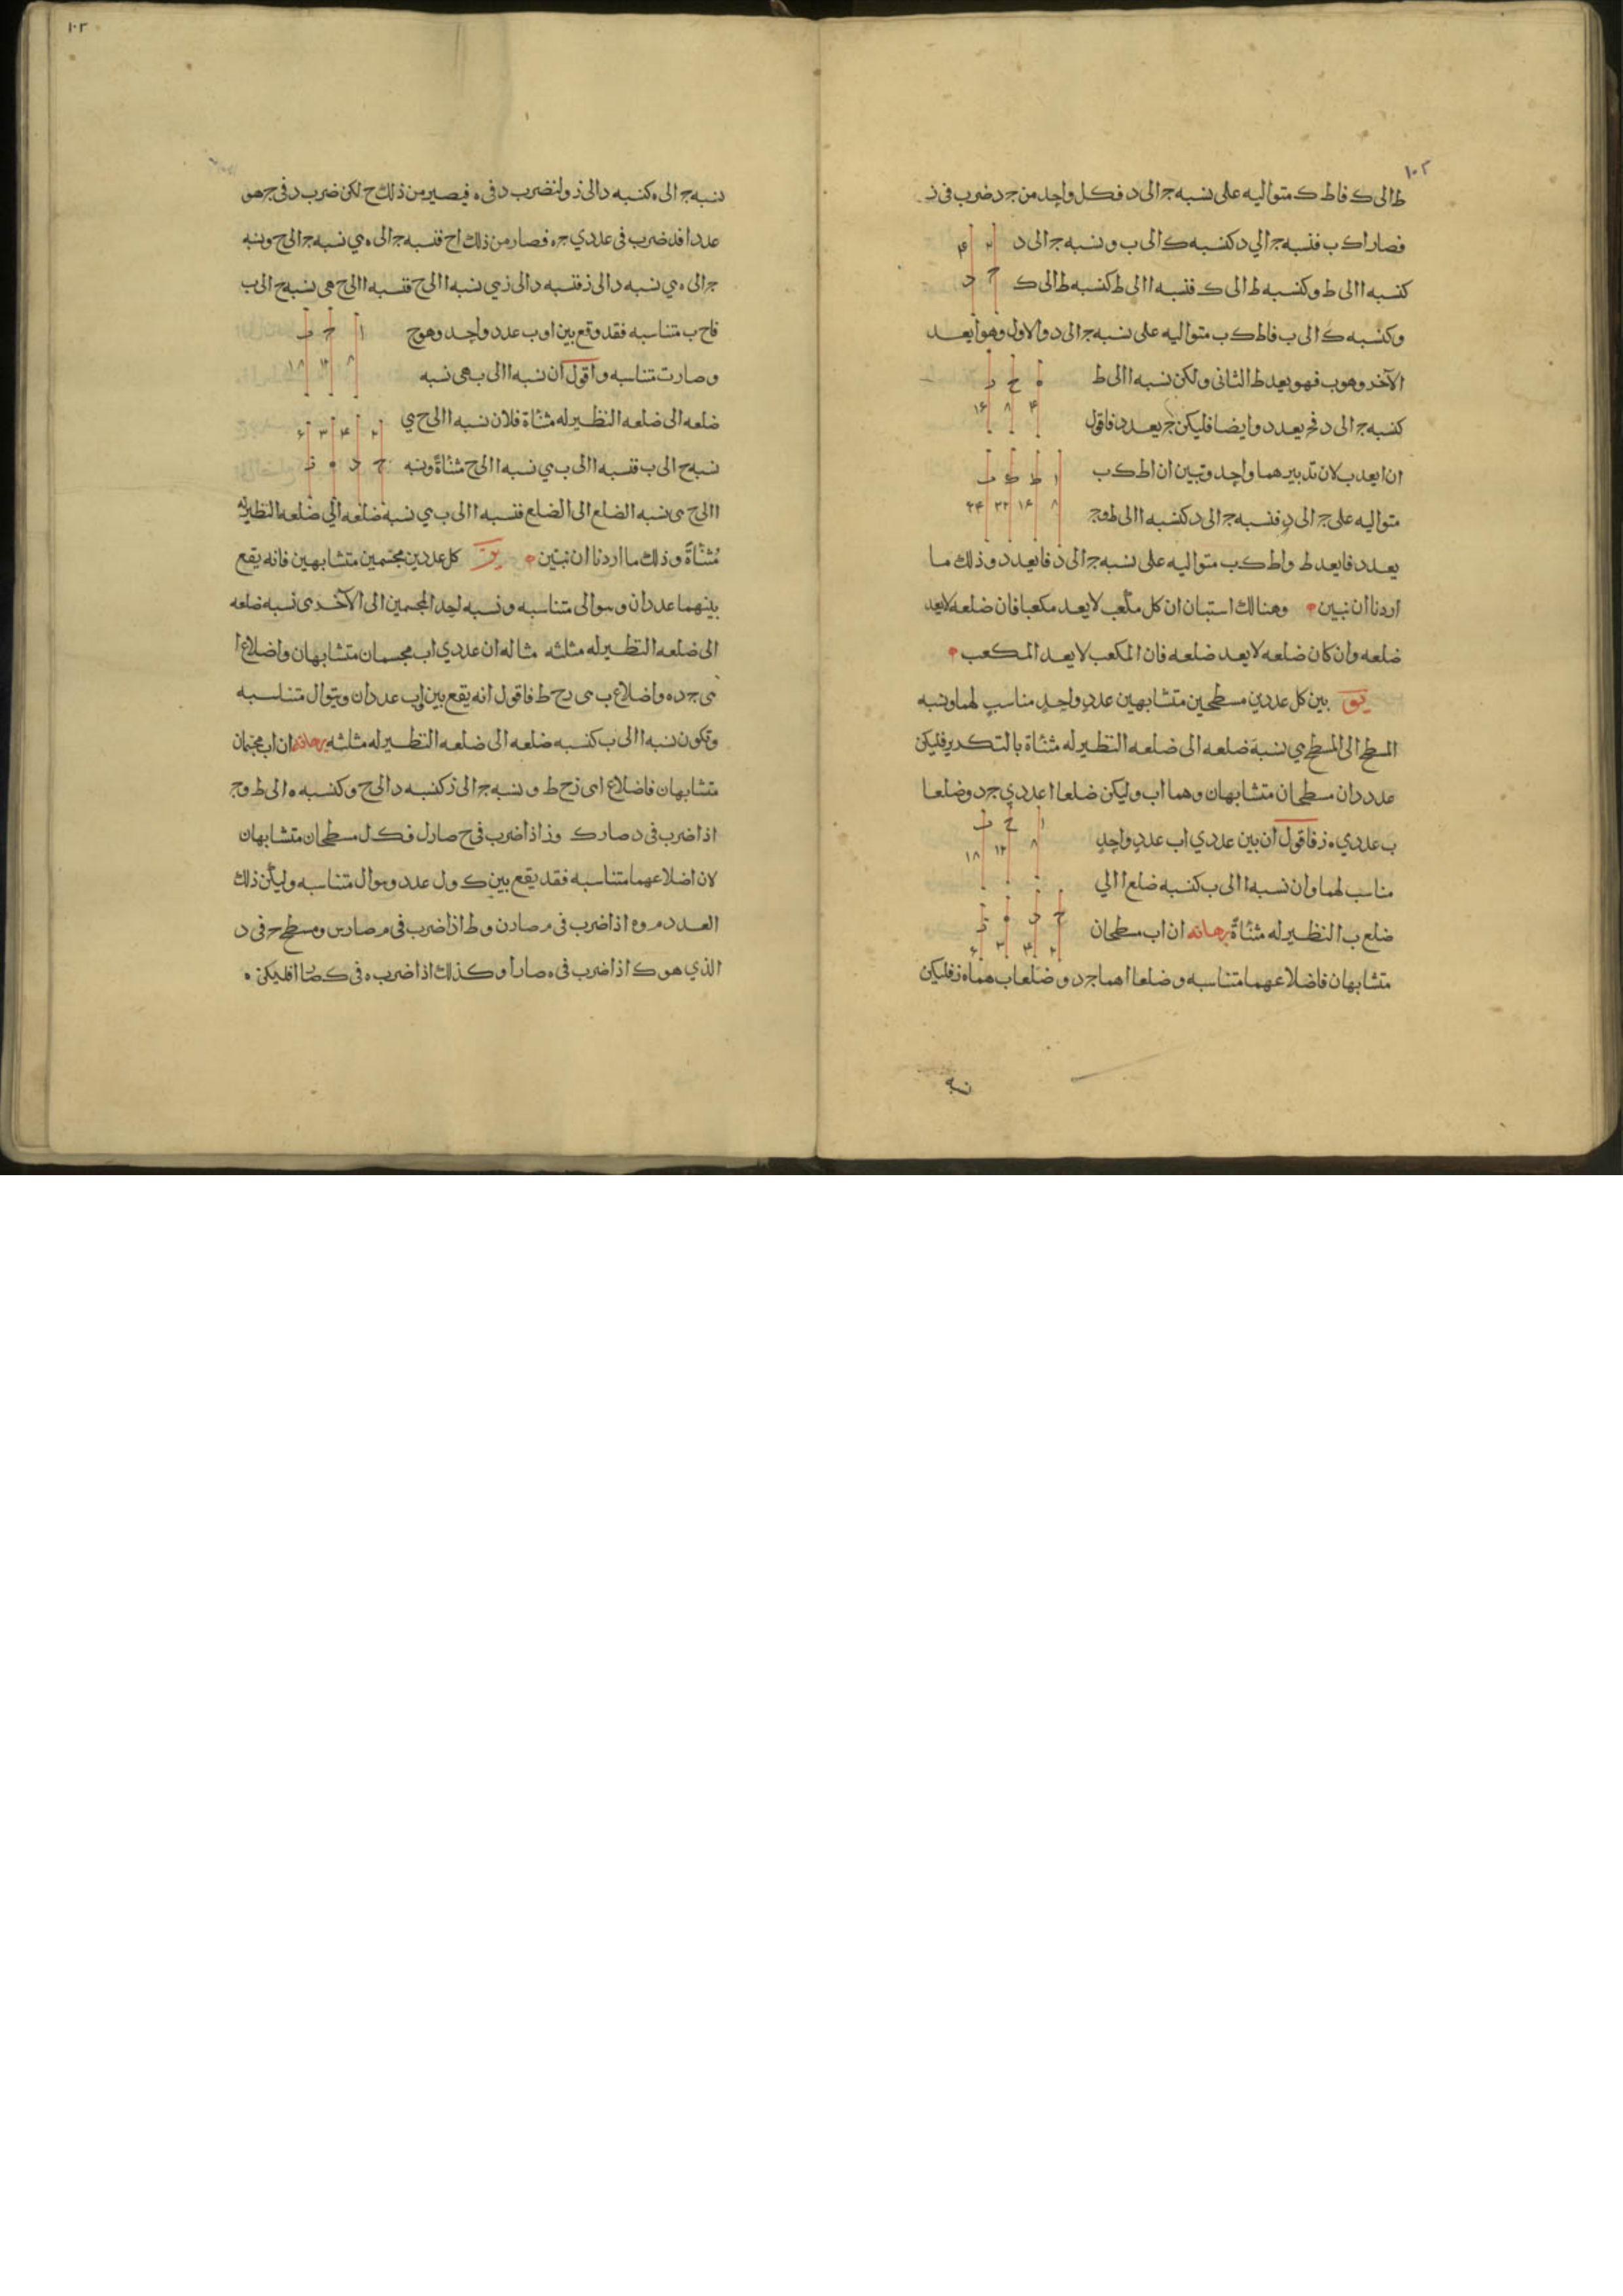 ١٠٢
ط الى ك فاط ك متواليه على نسبه ج الى د فكل واحد من ج د ضرب فى ز
فصار ا ك ب فنسبه ج الي د كنسبه ك الى ب و نسبه ج الى د
٢ ۴
ح د
كنسبه ا الى ط وكنسبه ط الى ك فنسبه ا الى ط كنسبه ط الى ك
وكنسبه ك الى ب فاط ك ب متواليه على نسبه ج الى د والاول وهو ا يعد
الآخر وهو ب فهو يعد ط الثانى ولكن نسبه ا الى ط
ه ح ز
۴ ٨ ١۶
كنسبه ج الى د فج يعد د وايضا فليكن ج يعد د فاقول
ان ا يعد ب لان تدبيرهما واحد وتبين ان اط ك ب
ا ط ك ب
٨ ١۶ ٣٢ ۶۴
متواليه على ج الى د فنسبه ج الى د كنسبه ا الى ط وج
يعد د فا يعد ط واط ك ب متواليه على نسبه ج الى د فا يعد د وذلك ما
اردنا ان نبين وهنالك استبان ان كل مكعب لا يعد مكعبا فان ضلعه لا يعد
ضلعه وان كان ضلعه لا يعد ضلعه فان المكعب لا يعد المكعب
يو بين كل عددين مسطحين متشابهين عدد واحد مناسب لهما ونسبه
المسطح الى المسطح هي نسبة ضلعه الى ضلعه النظير له مثناة بالتكرير فليكن
عددان مسطحان متشابهان وهما اب وليكن ضلعا ا عددي ج د وضلعا
ب عددي ه ز فاقول ان بين عددي اب عدد واحد
ا ح ب
٨ ١٢ ١٨
مناسب لهما وان نسبه ا الى ب كنسبه ضلع ا الي
ضلع ب النظير له مثناةً برهانه ان اب مسطحان
ح د ه ز
٢ ۴ ٣ ۶
متشابهان فاضلاعهما متناسبه وضلعا ا هما ج د وضلعا ب هما ه ز فليكن
نسبه
١٠٣
نسبه ج الى ه كنسبه د الى ز ولنضرب د فى ه فيصير من ذلك ح لكن ضرب د فى ج هو
عدد ا فد ضرب فى عددي ج ه فصار من ذلك اح فنسبه ج الى ه هي نسبه ج الى ح ونسبه
ج الى ه هي نسبه د الى ز فنسبه د الى ز هي نسبه ا الى ح فنسبه ا الى ح هى نسبه ح الى ب
فاح ب متناسبه فقد وقع بين ا و ب عدد واحد وهو ح
ا ح ب
٨ ١٢ ١٨
وصارت متناسبه واقول ان نسبه ا الى ب هى نسبه
ضلعه الى ضلعه النظير له مثناة فلان نسبه ا الى ح هي
٢ ۴ ٣ ۶
نسبه ح الى ب فنسبه ا الى ب هي نسبه ا الى ح مثناةً ونسبه
ح د ه ز
ا الى ح هى نسبه الضلع الى الضلع فنسبه ا الى ب هي نسبة ضلعه الي ضلعه النظير له
مُثنّاةً وذلك ما اردنا ان نبيّن يز كل عددين مجسمين متشابهين فانه يقع
بينهما عددان وتتوالى متناسبه ونسبه احد المجسمين الى الآخر هى نسبه ضلعه
الى ضلعه النظير له مثلثه مثاله ان عددي اب مجسمان متشابهان واضلاع ا
هى ج د ه واضلاع ب هى زح ط فاقول انه يقع بين اب عددان وتتوال متناسبه
وتكون نسبه ا الى ب كنسبه ضلعه الى ضلعه النظير له مثلثه برهانه ان اب مجسمان
متشابهان فاضلاع ا هى زح ط و نسبه ج الى ز كنسبه د الى ح وكنسبه ه الى ط وج
اذا ضرب فى د صار ك وز اذا ضرب فى ح صار ل فك ل مسطحان متشابهان
لان اضلاعهما متناسبه فقد يقع بين ك ول عدد وتتوال متناسبه وليكن ذلك
العدد م وه اذا ضرب فى م صار ن وط اذا ضرب فى م صار س ومسطح ج فى د
الذي هو ك اذا ضرب فى ه صار ا وكذلك اذا ضرب ه فى ك صار ا فليكن ه